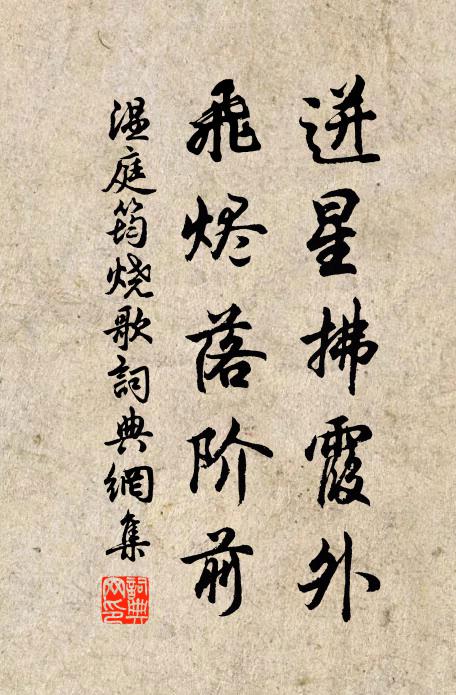 迸星拂霞外
飛烬落阶前
温庭筠烧歌詞典網集
詞典